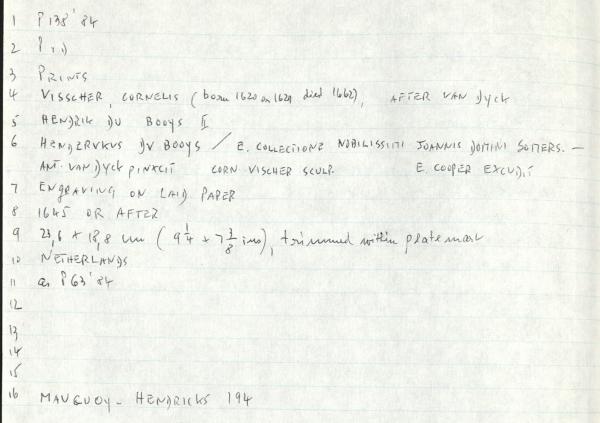 1 P138'84
2 P
3 PRINTS
4 VISSCHER, CORNELIS (born 1620 or 1629 died 1662), AFTER VAN DYCK
5 HENDRIK DU BOOYS II
6 HENDERYKUS DV BOOYS / E. COLLECTIONE NOBILISSIMI JOANNIS DOMINI SOMERS. —
ANT. VAN DYCK PINXCIT CORN VISCHER SCULP. E. COOPER EXCUDIT
7 ENGRAVING ON LAID PAPER
8 1645 OR AFTER
9 23,6 x 18,8 cm (9 1/4 x 7 3/8 ins), trimmed within platemark
10 NETHERLANDS
11 as P63'84
12
13
14
15
16 MAUQUOY - HENDRICKS 194